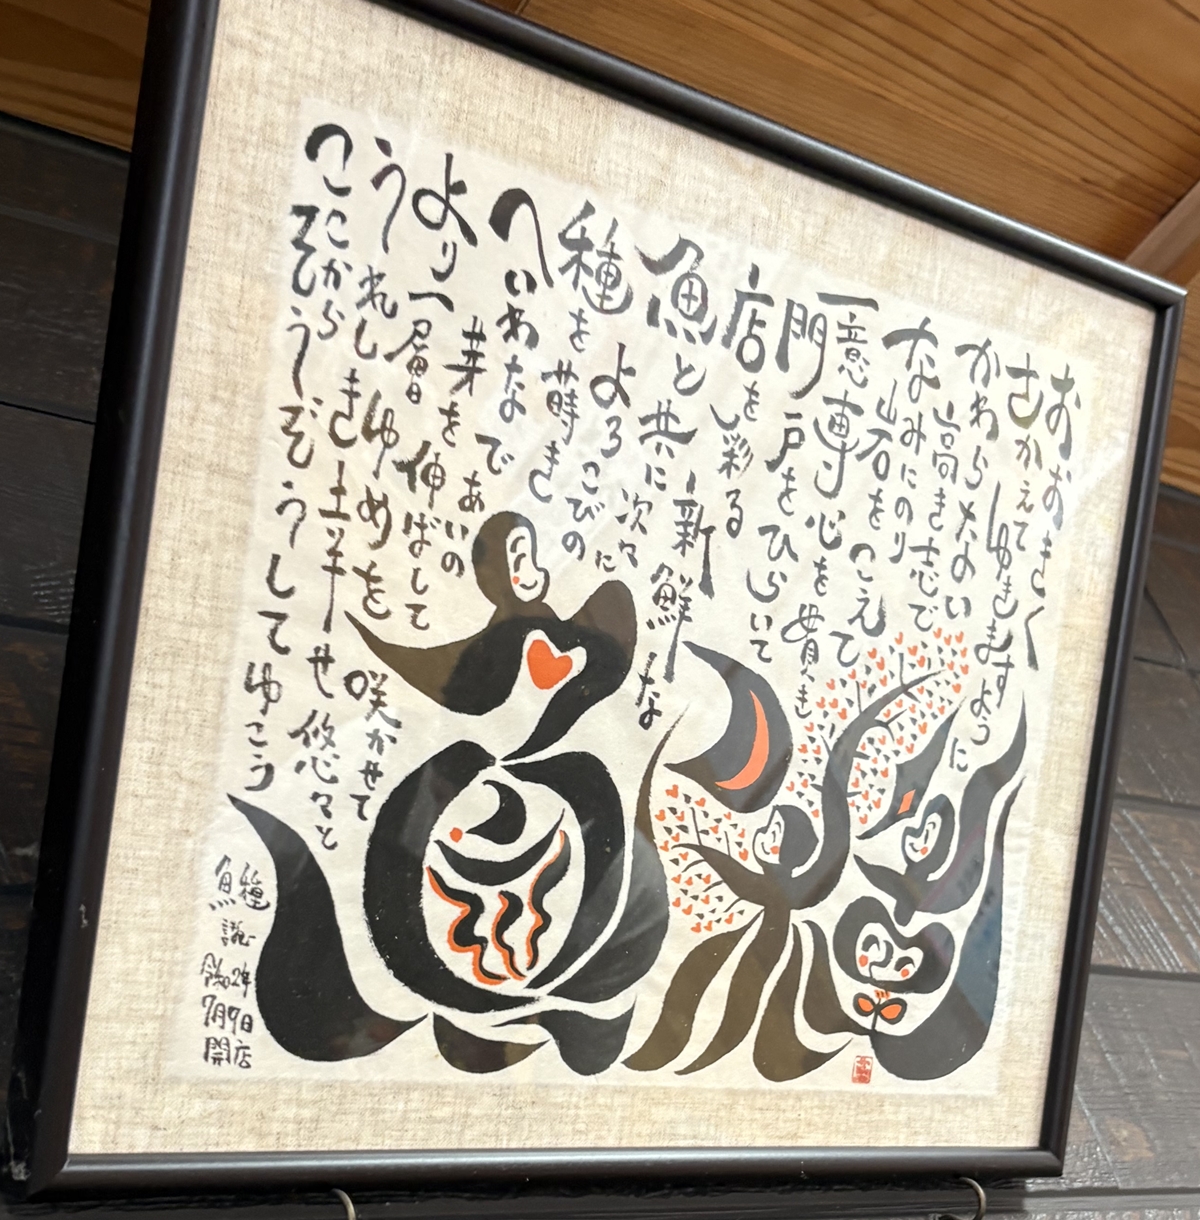 おおきく
さかえてゆきますように
かわらぬおもい
高き志で
なみにのり
岩をこえて
一意専心を貫き
門戸をひらいて
店を彩る
魚と共に新鮮な
次々に
よろこびの
種を蒔き
へいわなであいの
芽を伸ばして
より一層
うれしきゆめを
咲かせて
ここから土羊せ悠々と
ぞうぞうしてゆこう
魚種
令和2年
7月9日
開店